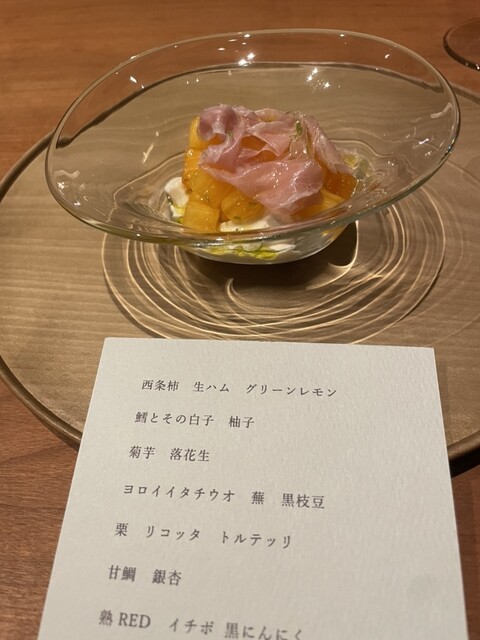 西条柿　生ハム　グリーンレモン
鱈とその白子　柚子
菊芋　落花生
ヨロイイタチウオ　蕪　黒枝豆
栗　リコッタ　トルテッリ
甘鯛　銀杏
熟 RED　イチボ 黒にんにく